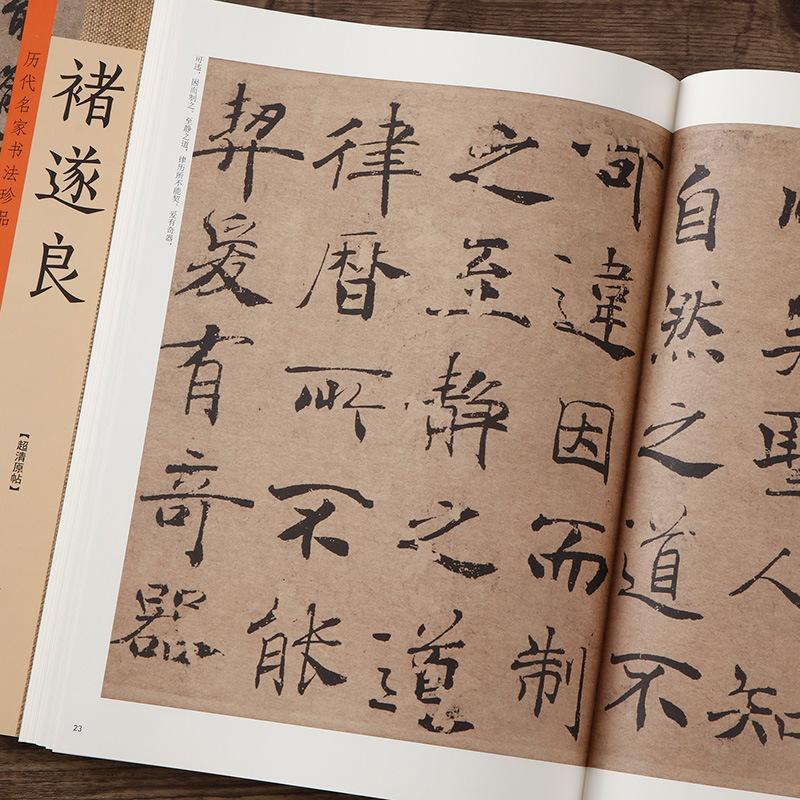 历代名家书法珍品
褚遂良
【超清原帖】
可违，因而制之。至静之道，律历所不能契。爰有奇器，
聖人知
自然之道不
可違因而制
之至静之道
律曆所不能
契爰有奇器
23